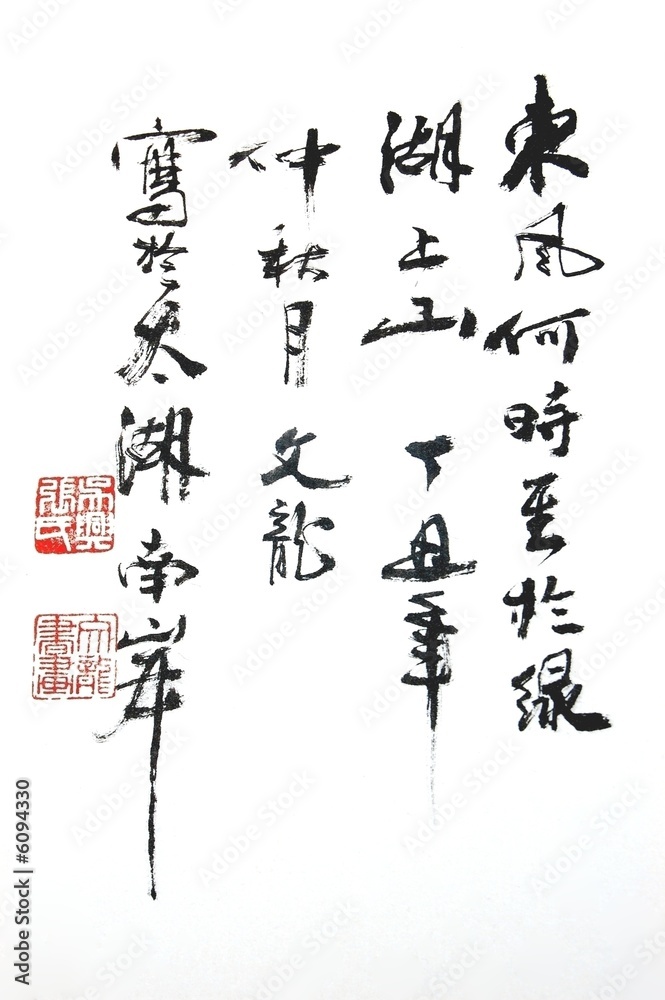 東風何時至於綠
湖上山 丁丑年
仲秋月 文龍
寫於太湖南岸
吳興
張氏
文龍
書畫
Adobe Stock | #6094330